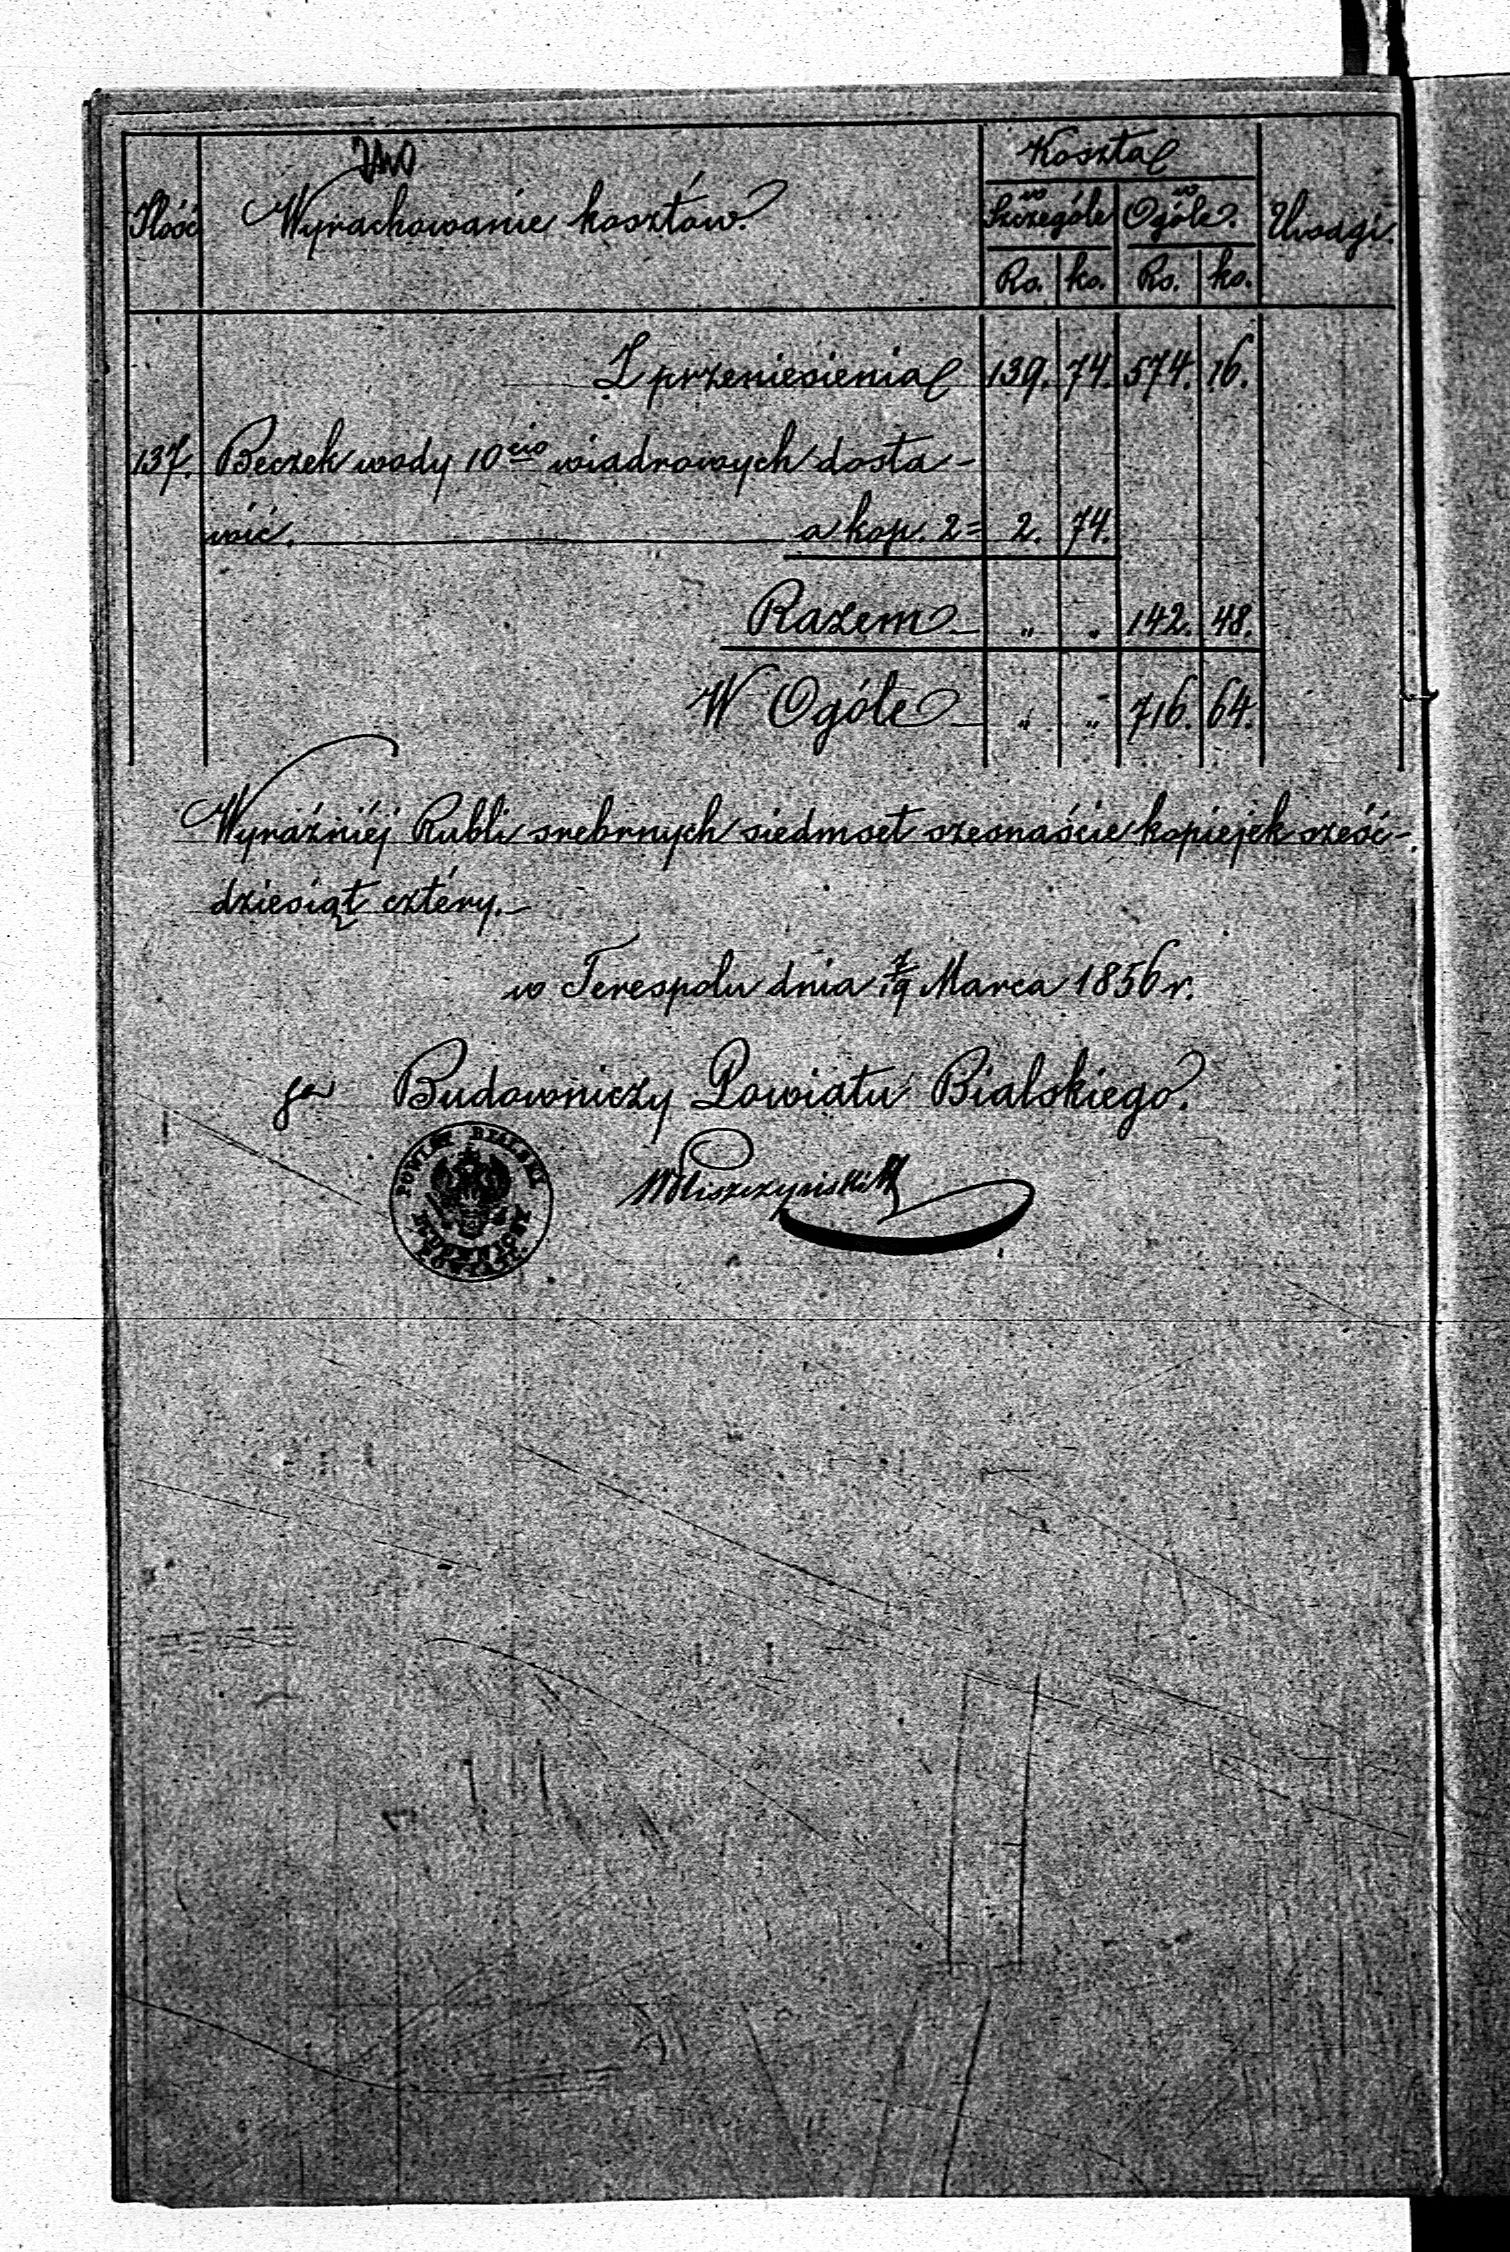 Ilość Wyrachowanie kosztów. Koszta Uwagi.
w Szczególe w Ogóle.
Rs. ko. Rs. ko.
Z przeniesienia 139. 74. 574. 16.
137. Beczek wody 10cio wiadrowych dosta-
wić. a kop. 2 = 2. 74.
Razem „ „ 142. 48.
W Ogóle „ „ 716. 64.
Wyraźniéj Rubli srebrnych siedmset szesnaście kopiejek sześć-
dziesiąt cztéry.
w Terespolu dnia 7/19 Marca 1856 r.
Budowniczy Powiatu Bialskiego.
POWIAT BIALSKI
BUDOWNICZY